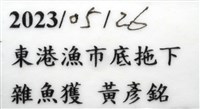 2023/05/26
東港漁市底拖下
雜魚獲 黃彥銘